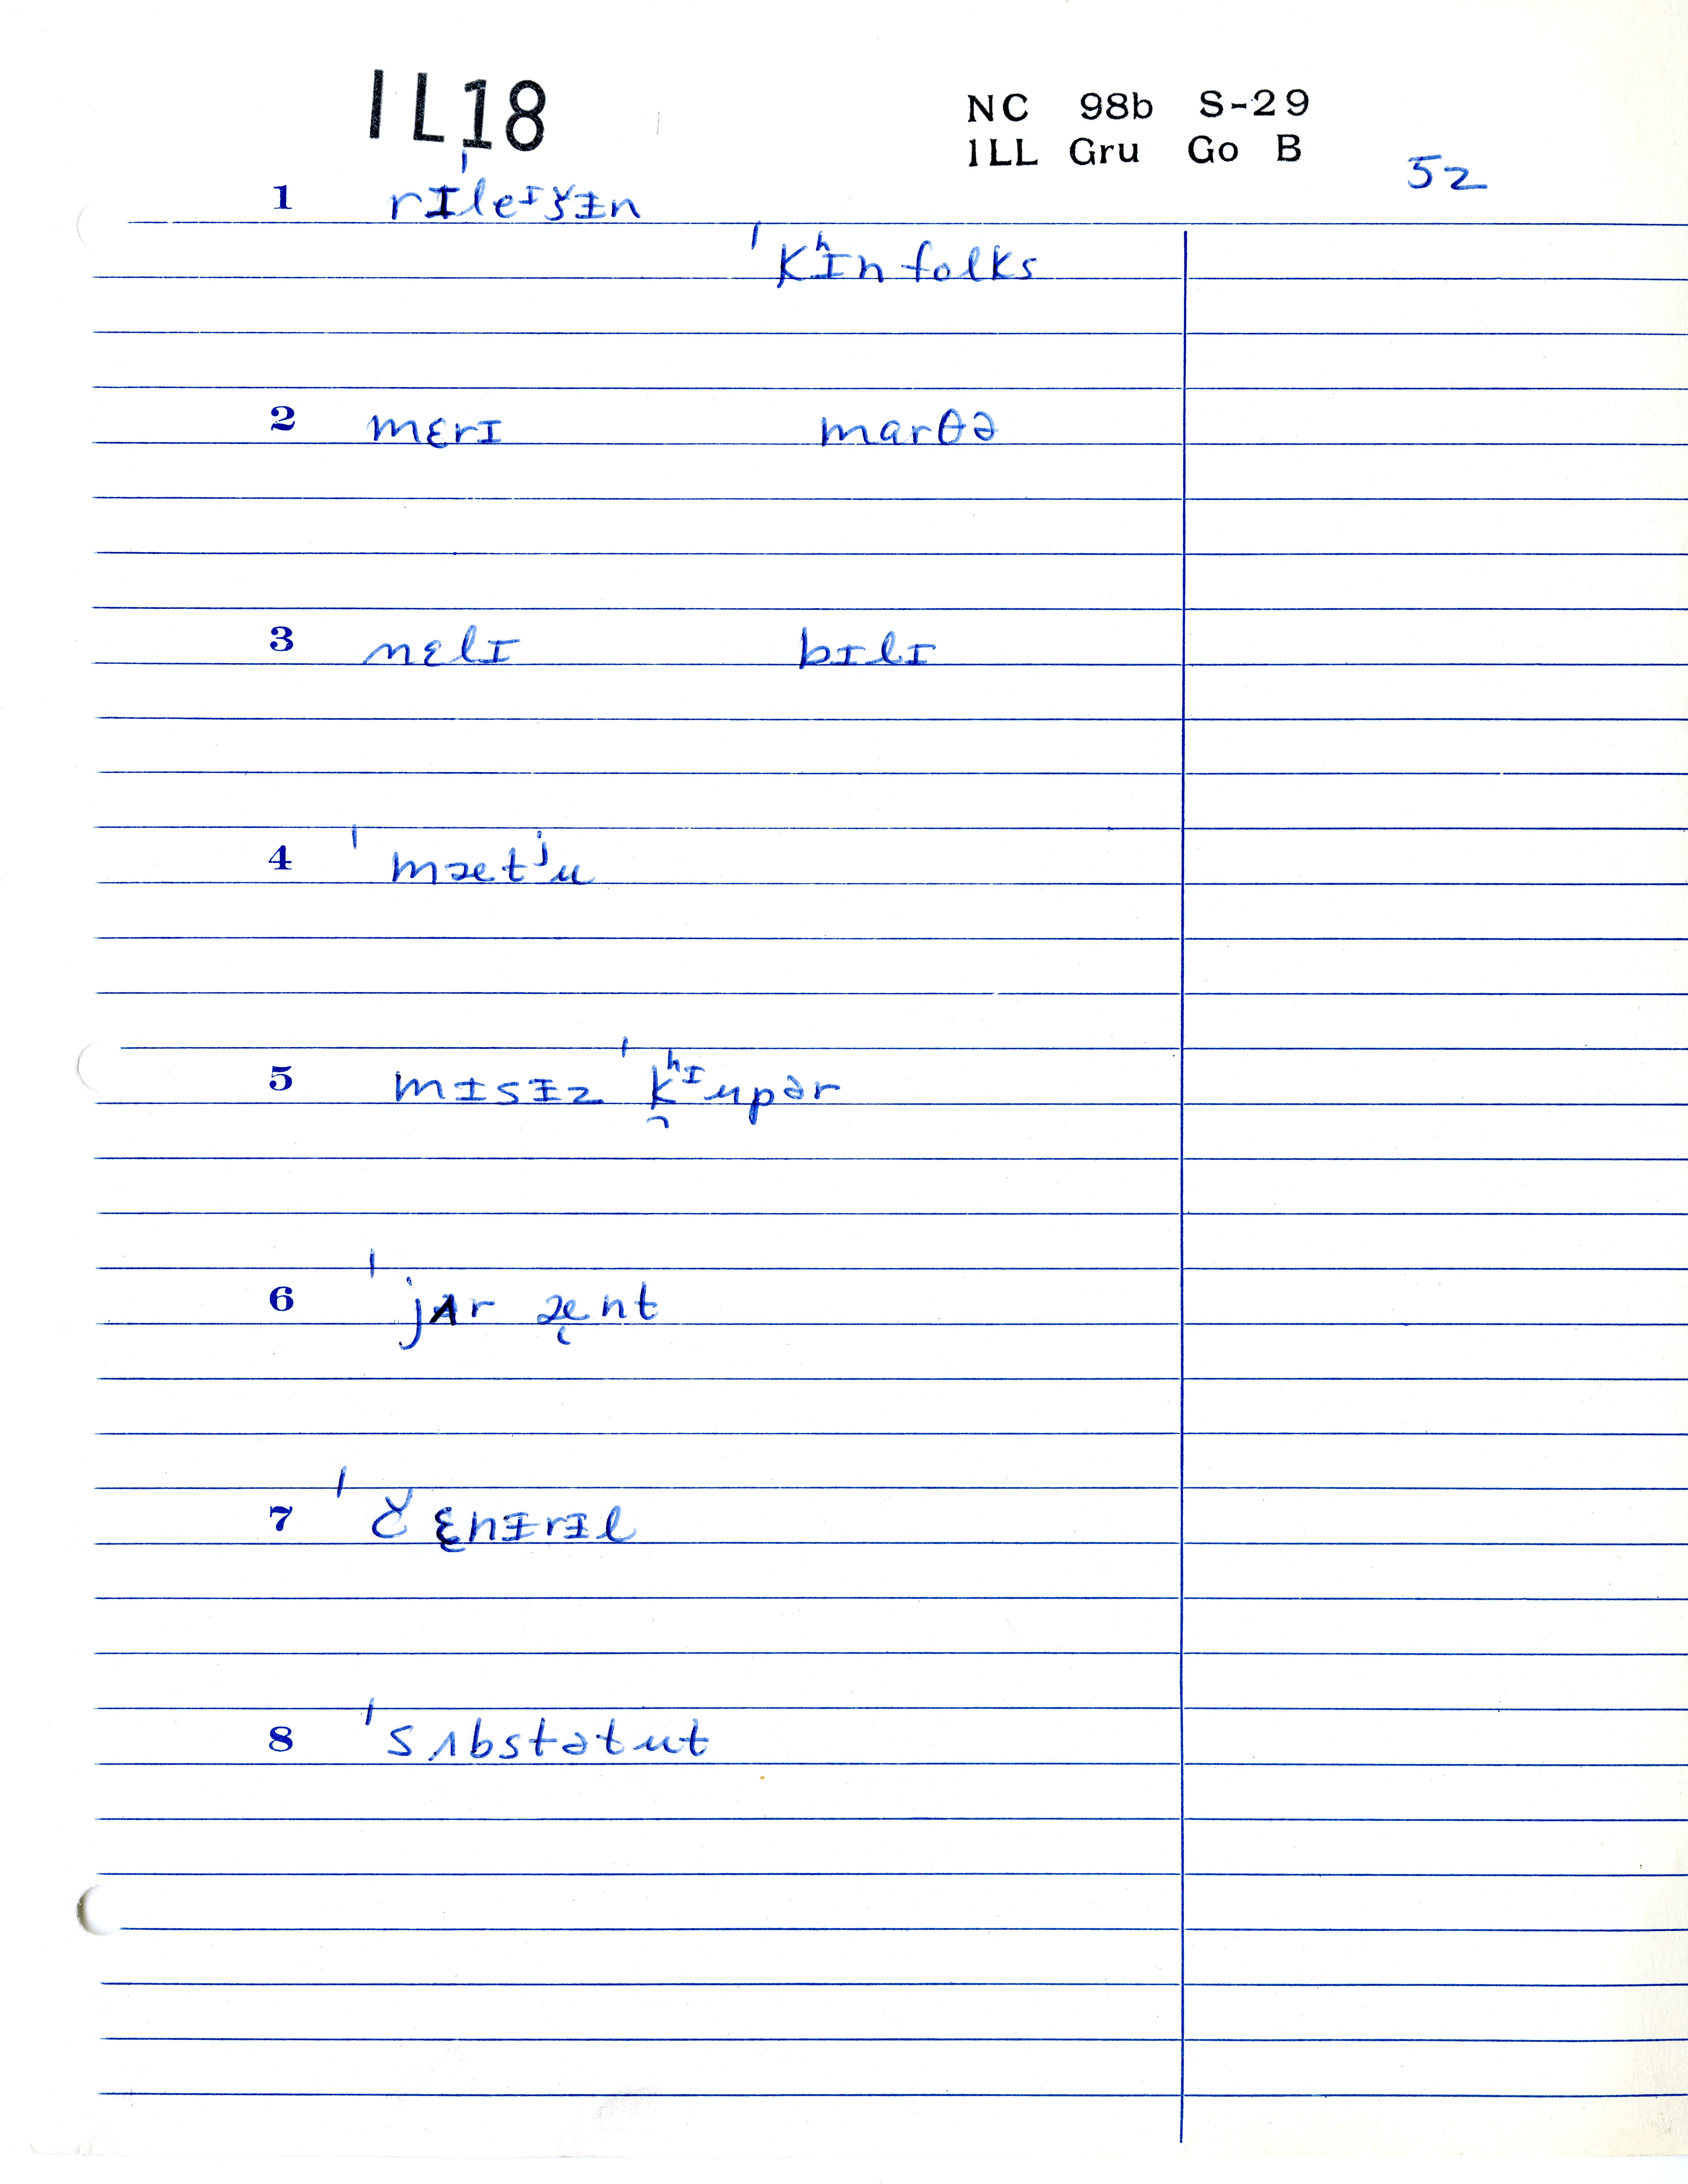 IL18
NC 98b S-29
ILL Gru Go B
52
1 rɪˈleᶦǯɪ̵n
ˈkʰɪnfolks
2 mɛrɪ marθə
3 nɛlɪ bɪlɪ
4 ˈmætʲu
5 mɪsɪ̵z ˈk̯ʰᶦupər
6 ˈjʌr æ̨nt
7 ˈǰɛ̨nɪ̵rɪ̵l
8 ˈsʌbstətut